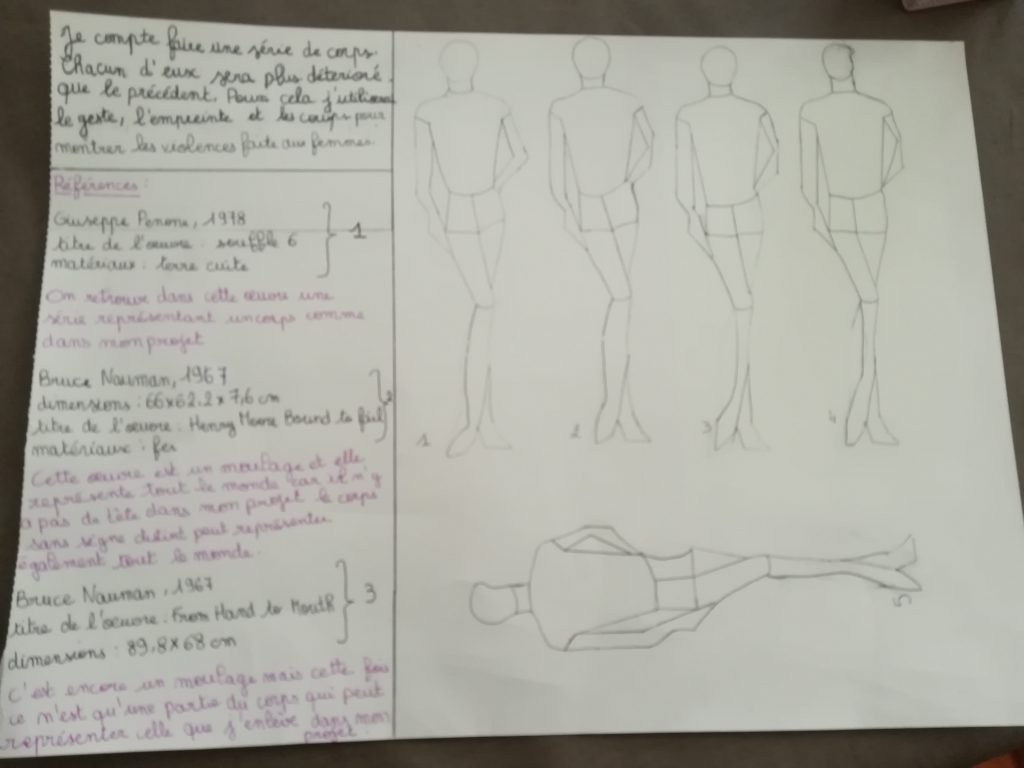 Je compte faire une série de corps.
Chacun d'eux sera plus déterioré
que le précédent. Pour cela j'utiliserai
le geste, l'empreinte et les coups pour
montrer les violences faite aux femmes.
Références :
Giuseppe Penone, 1978
titre de l'œuvre : souffle 6
matériaux : terre cuite
1
On retrouve dans cette œuvre une
série représentant un corps comme
dans mon projet
Bruce Nauman, 1967
dimensions : 66x62.2x7,6 cm
titre de l'oeuvre : Henry Moore Bound to fail
matériaux : fer
2
Cette œuvre est un moulage et elle
représente tout le monde car il n'y
a pas de tête dans mon projet le corps
sans signe distint peut représenter
également tout le monde.
Bruce Nauman, 1967
titre de l'oeuvre : From Hand to Mouth
dimensions : 89,8x68 cm
3
C'est encore un moulage mais cette fois
ce n'est qu'une partie du corps qui peut
représenter celle que j'enlève dans mon
projet.
1
2
3
4
5